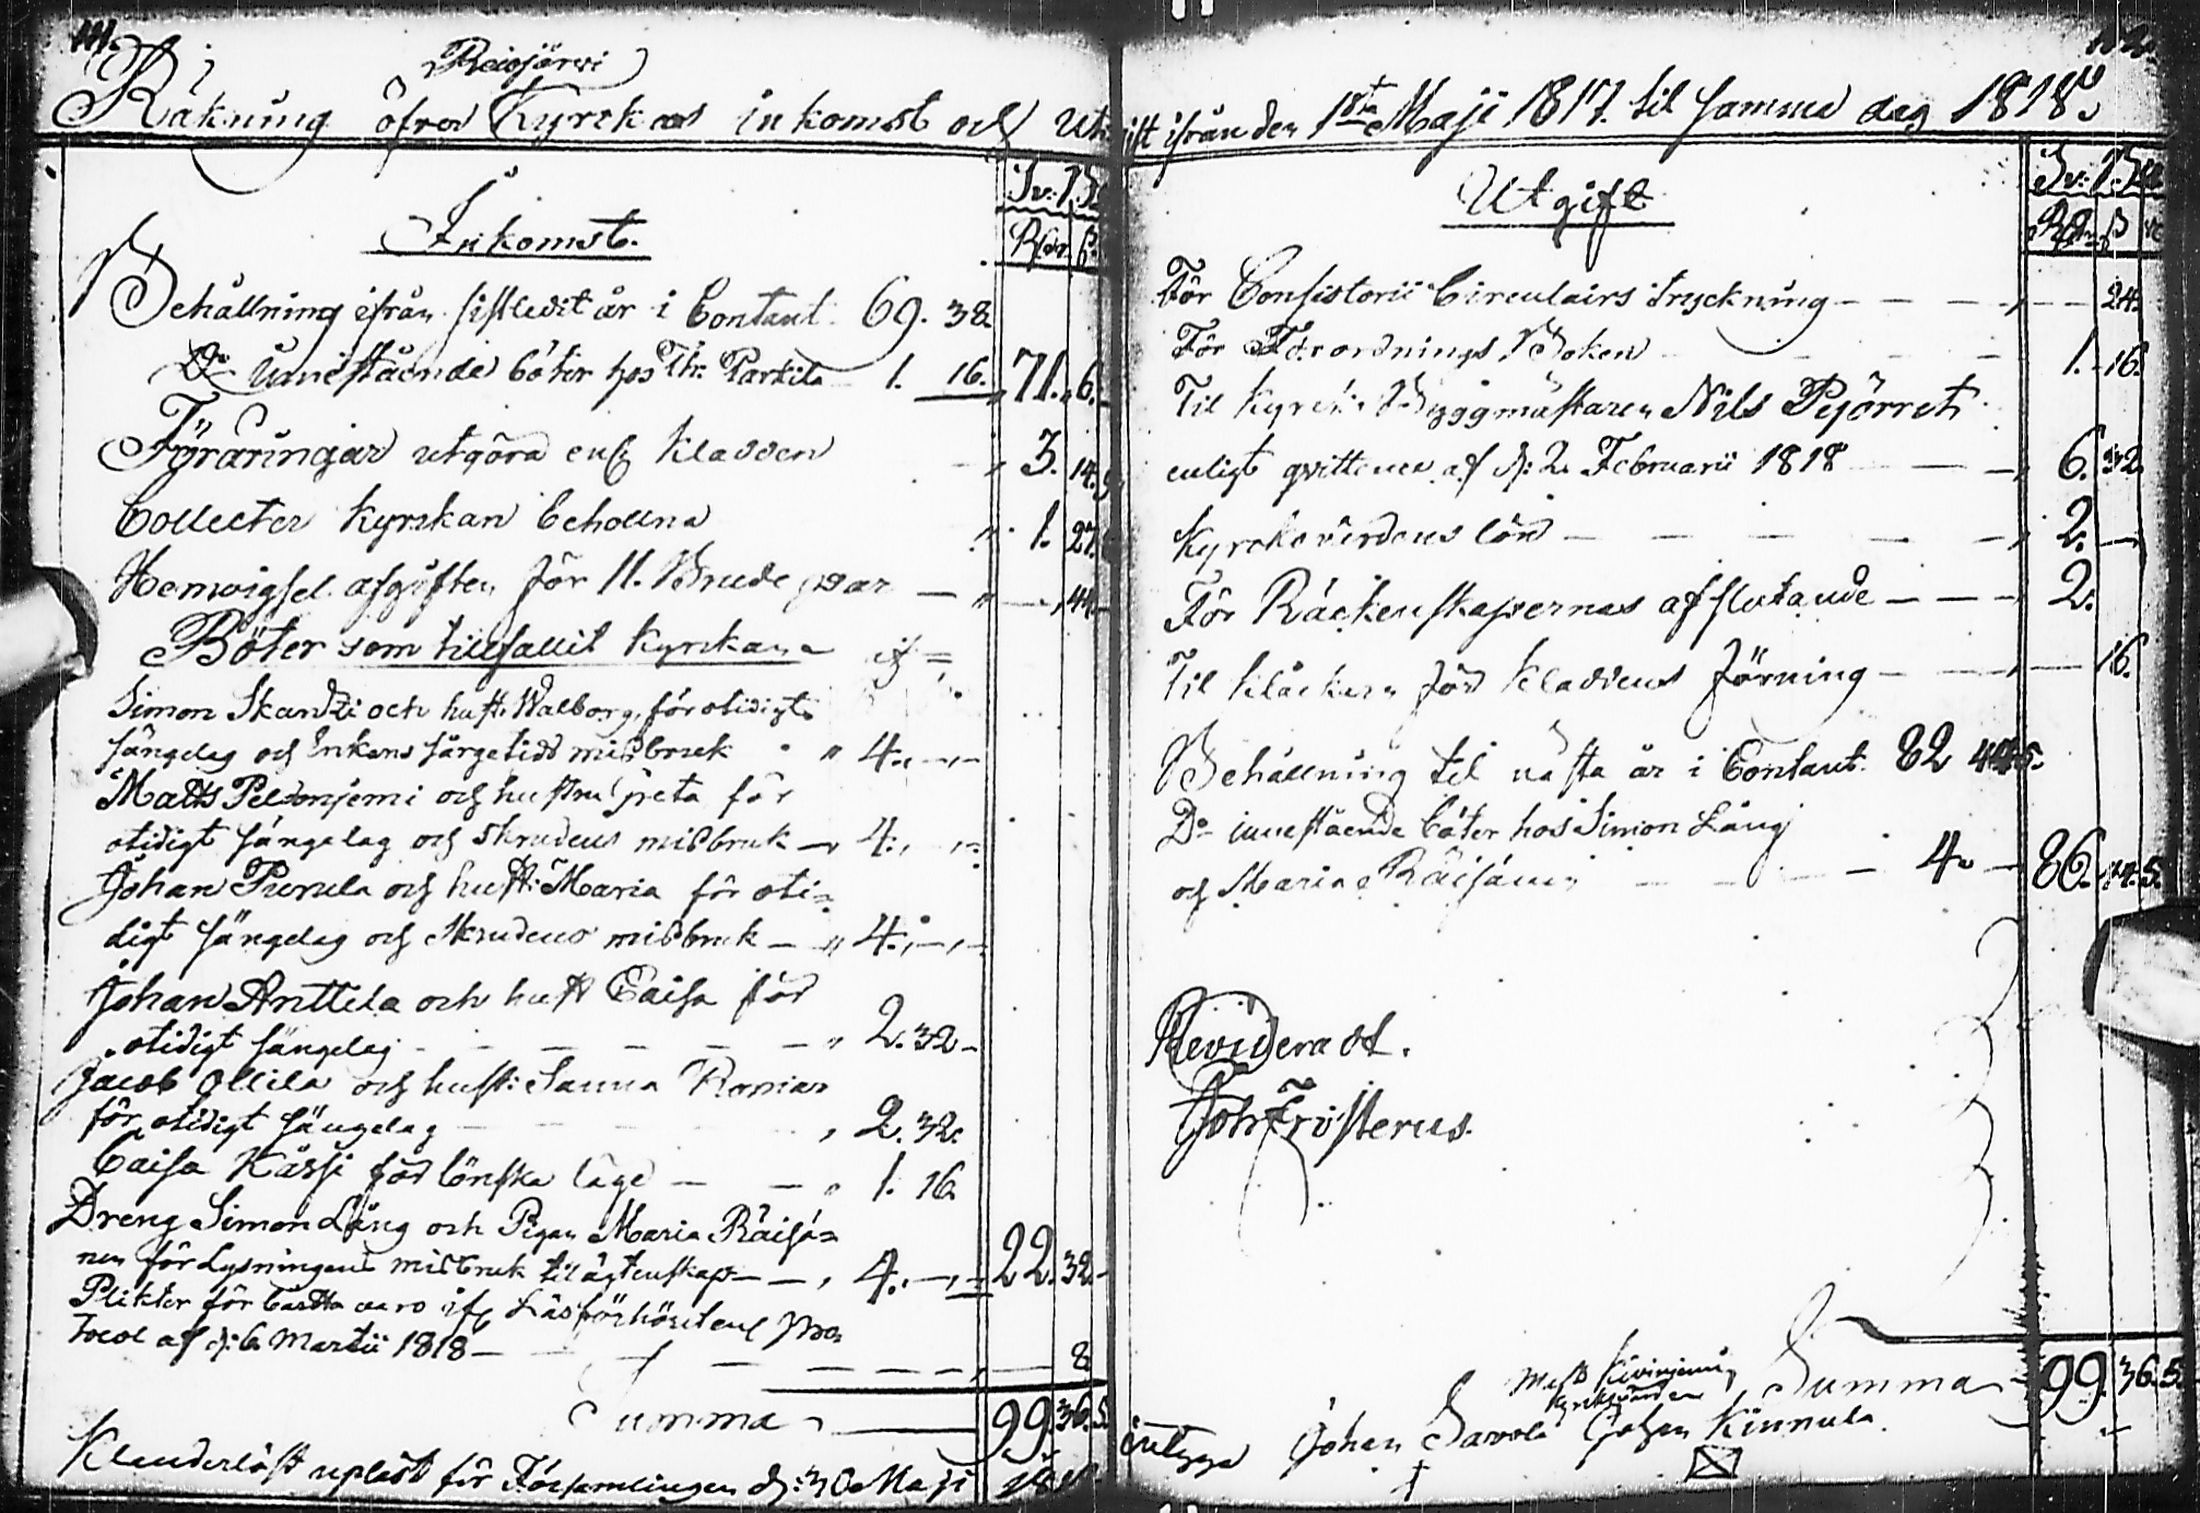 101.
Reisjärvi
Räkning öfver Kyrckans inkomst och Ut
Inkomst.
Rdr ß
Behållning ifrån sistledit år i Contant 69. 38.
Do innestående böter hos Th: Parkila 1. 16. 71. 6.
Föräringar utgöra enl Kladden 3. 14.
Collecter Kyrckan behollna 1. 27.
Hemvigsel afgiften för 11. Brude par 44.
Böter som tillfallit Kyrckan
Simon Skantzi och hust: Walborg, för otidigt
sängelag och Enkens särgetids missbruk 4. — —
Matts Peldoniemi och hustru Greta för
otidigt sängelag och skrudens missbruk 4. — —
Johan Purula och hust: Maria för oti=
digt sängelag och Skrudens missbruk 4. — —
Johan Anttila och hust Caisa för
otidigt sängelag 2. 32
Jacob Ollila och hust: Sanna
för otidigt sängelag 2. 32.
Caisa Kässi för lönska läge 1. 16.
Dreng Simon Lång och Pigan Maria Räisä=
nen för Lysningens missbruk til ägtenskap 4. — — 22. 32.
Plikter för Läsförhörens Pro
tocol af d: 6 Martii 1818 8
Summa 99. 36. 5.
Klanderlöst upläst för Församlingen d: 30 Maji 1818
ift ifrån den 1sta Maji 1817. til samma dag 1818.
Utgift
Rdr ß
För Consistorii Circulairs tryckning 24.
För Förordnings Boken 1. 16.
Til Kyrck: Byggmästaren Nils Pejörret
enligt qvittence af d: 2 Februarii 1818 6. 32.
Kyrckovärdens lön 2. —
För Räckenskapernas afslutande 2.
Til Klåckaren för Kladdens förning 16.
Behållning til nästa år i Contant. 82 44. 5.
Do innestående böter hos Simon Lång
och Maria Räisänen 4. — 86. 44. 5.
Revideradt.
Joh Frosterus.
Summa 99. 36. 5.
Matts Kivinjemi
Kyrckvärden
intyga Johan Savola Johan Kinnula.